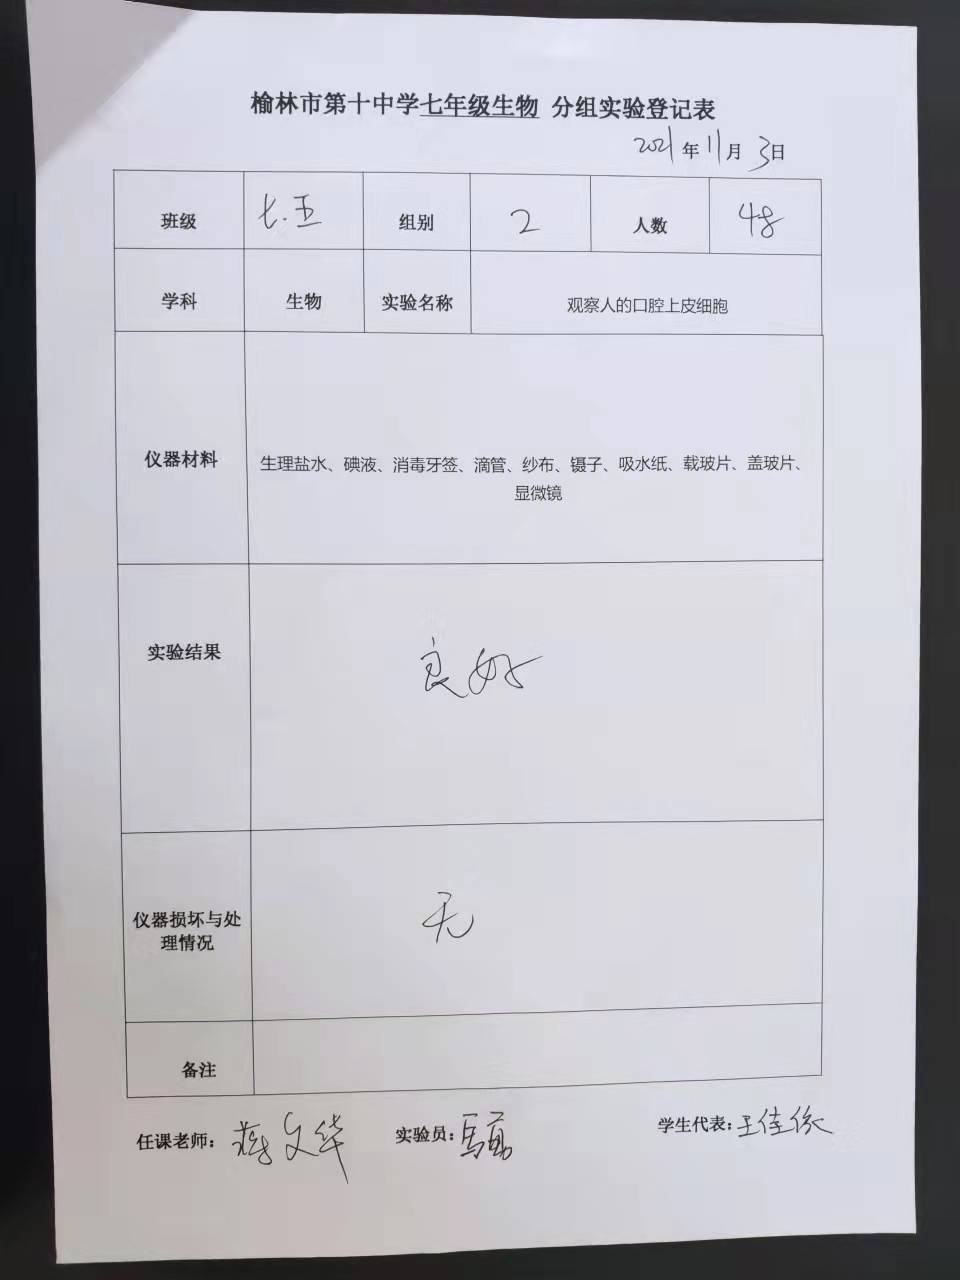 榆林市第十中学七年级生物 分组实验登记表
2021年11月3日
班级 七.五 组别 2 人数 48
学科 生物 实验名称 观察人的口腔上皮细胞
仪器材料
生理盐水、碘液、消毒牙签、滴管、纱布、镊子、吸水纸、载玻片、盖玻片、
显微镜
实验结果 良好
仪器损坏与处
理情况
无
备注
任课老师：蒋文华 实验员： 学生代表：王佳依